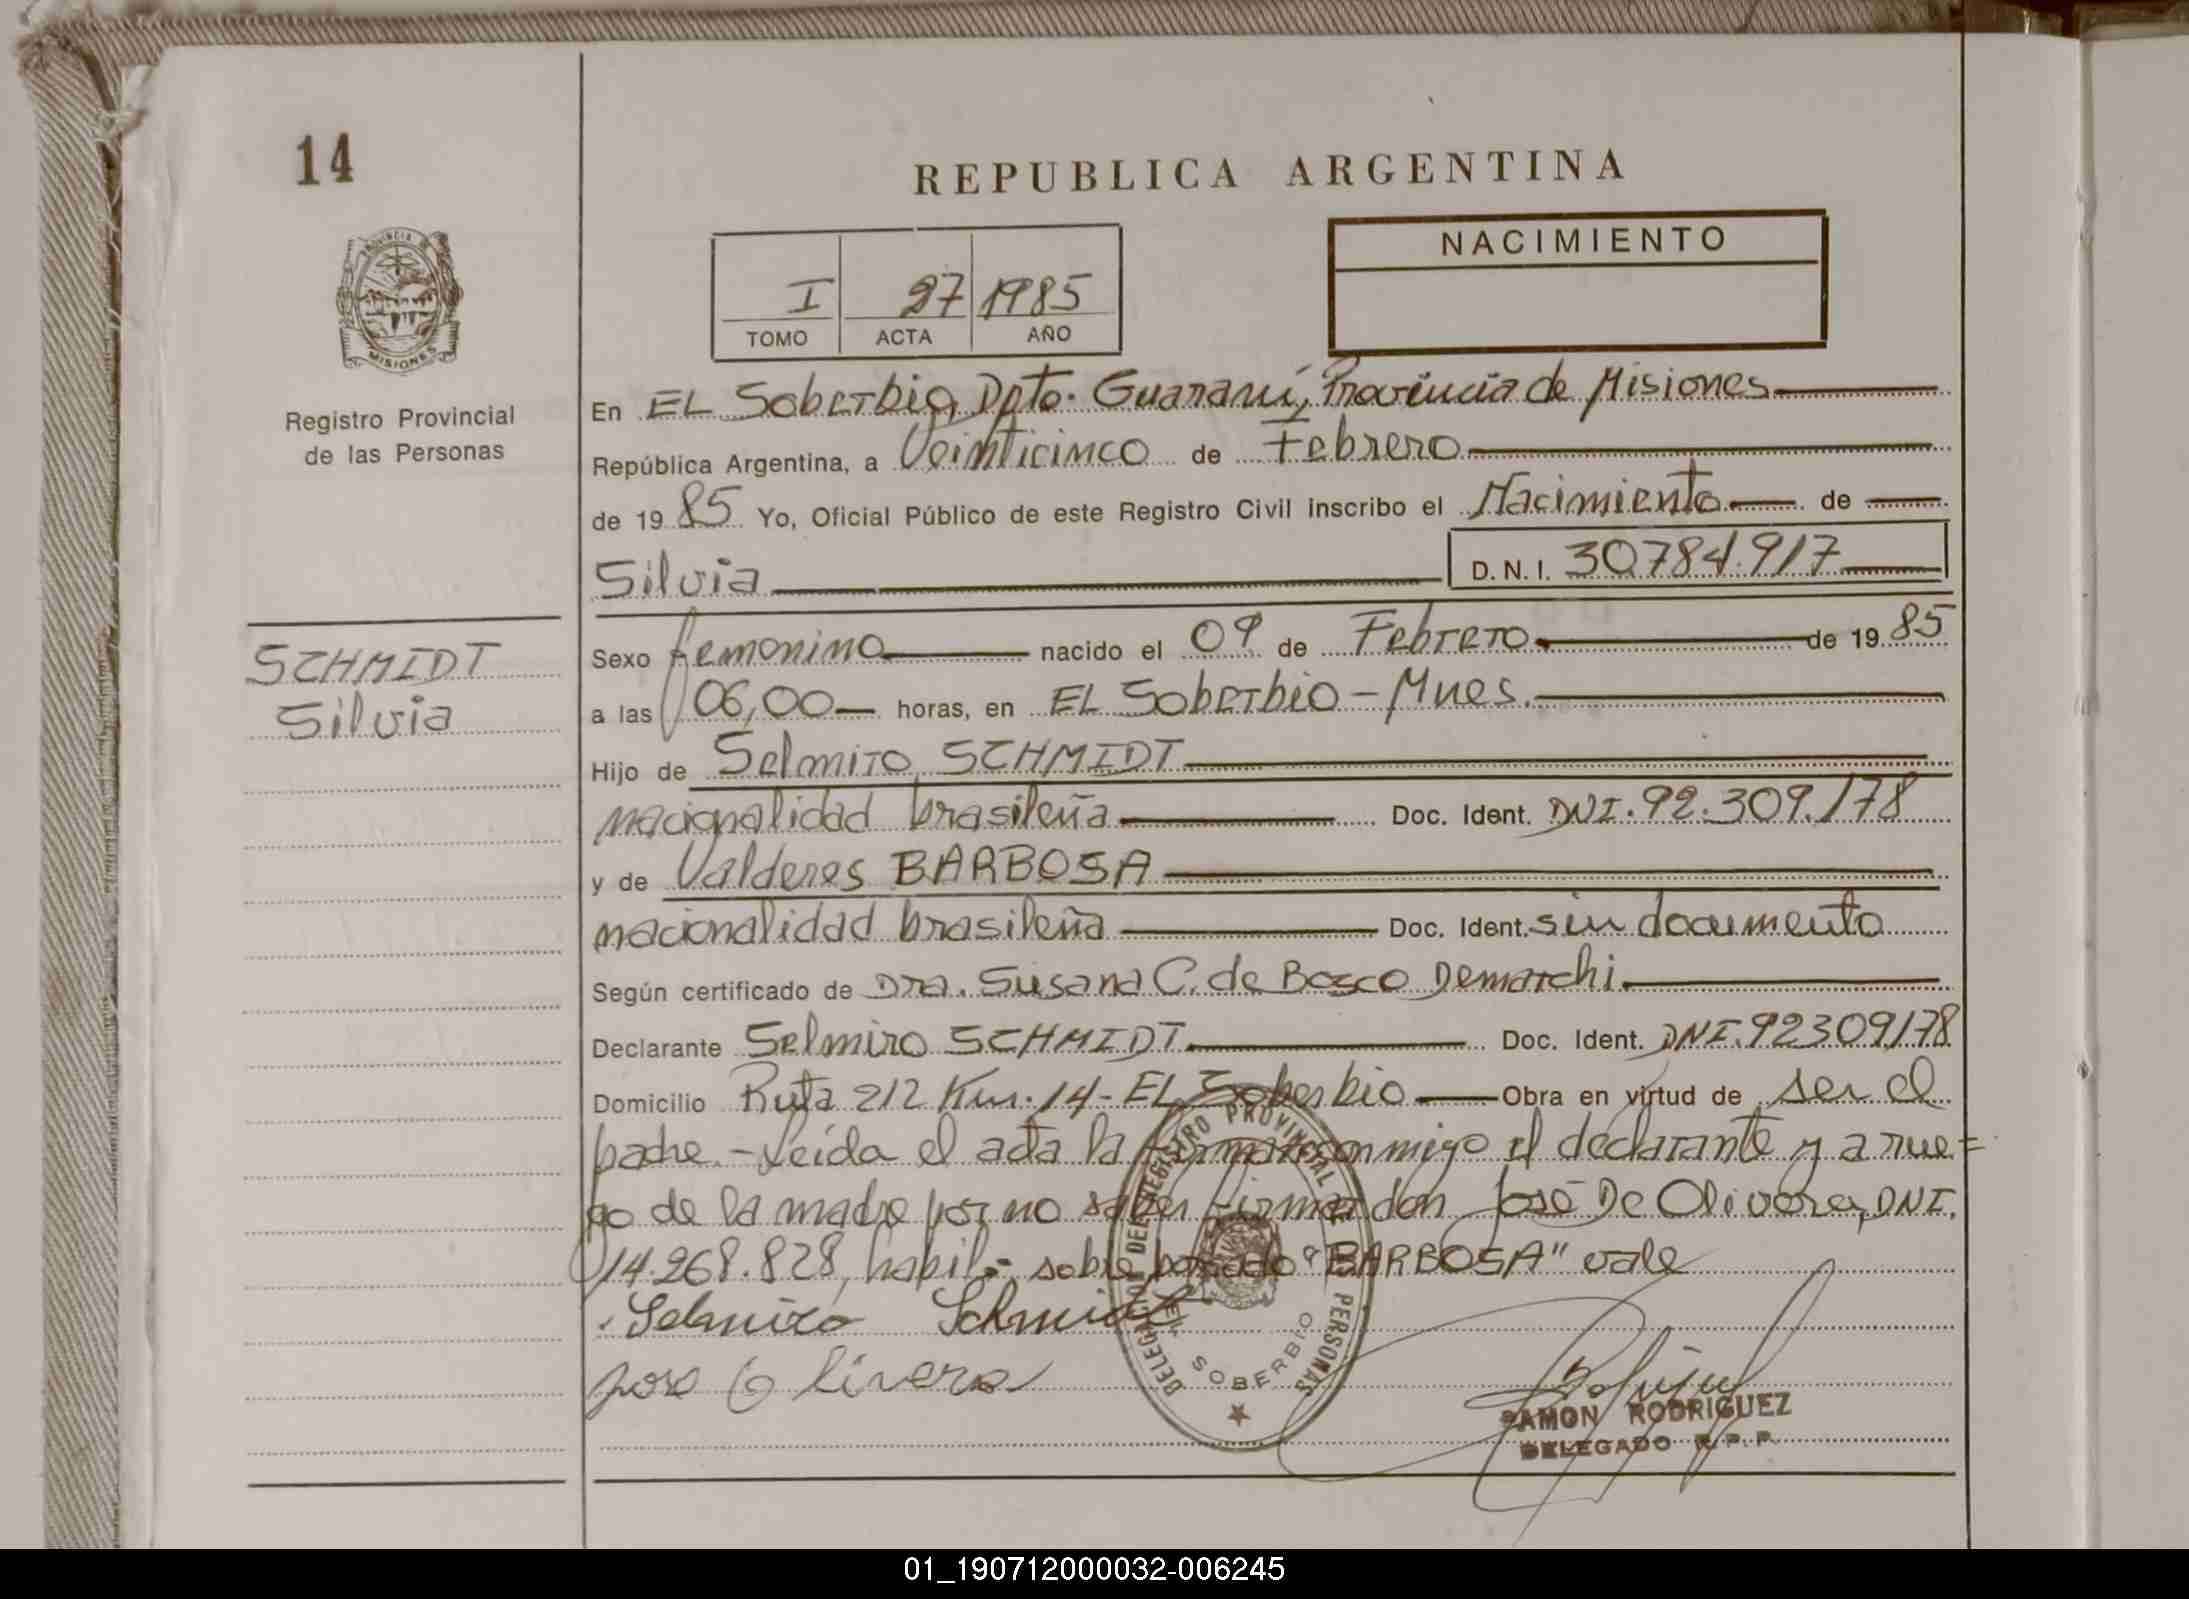 14
REPUBLICA ARGENTINA
NACIMIENTO
I 27 1985
TOMO ACTA AÑO
PROVINCIA DE
MISIONES
Registro Provincial
de las Personas
En EL Soberbio, Dpto. Guaraní, Provincia de Misiones
República Argentina, a Veinticinco de Febrero
de 1985 Yo, Oficial Público de este Registro Civil inscribo el Nacimiento de
Silvia D.N.I. 30.784.917
SCHMIDT
Silvia
Sexo femenino nacido el 09 de Febrero de 1985
a las 06,00 horas, en EL Soberbio - Mnes.
Hijo de Selmiro SCHMIDT
nacionalidad brasileña Doc. Ident. DNI. 92.309.178
y de Valderes BARBOSA
nacionalidad brasileña Doc. Ident. sin documento
Según certificado de Dra. Susana C. de Bosco Demarchi
Declarante Selmiro SCHMIDT Doc. Ident. DNI. 92309178
Domicilio Ruta 212 Km. 14 - EL Soberbio Obra en virtud de ser el
padre. - Leída el acta la firman conmigo el declarante y a rue=
go de la madre por no saber firmar don José De Olivera, DNI.
14.268.828, habil.- sobre borrado "BARBOSA" vale
Selmiro Schmidt
jose Olivera
DELEGACION DEL REGISTRO PROVINCIAL DE PERSONAS
EL SOBERBIO
RAMON RODRIGUEZ
DELEGADO R.P.P.
01_190712000032-006245